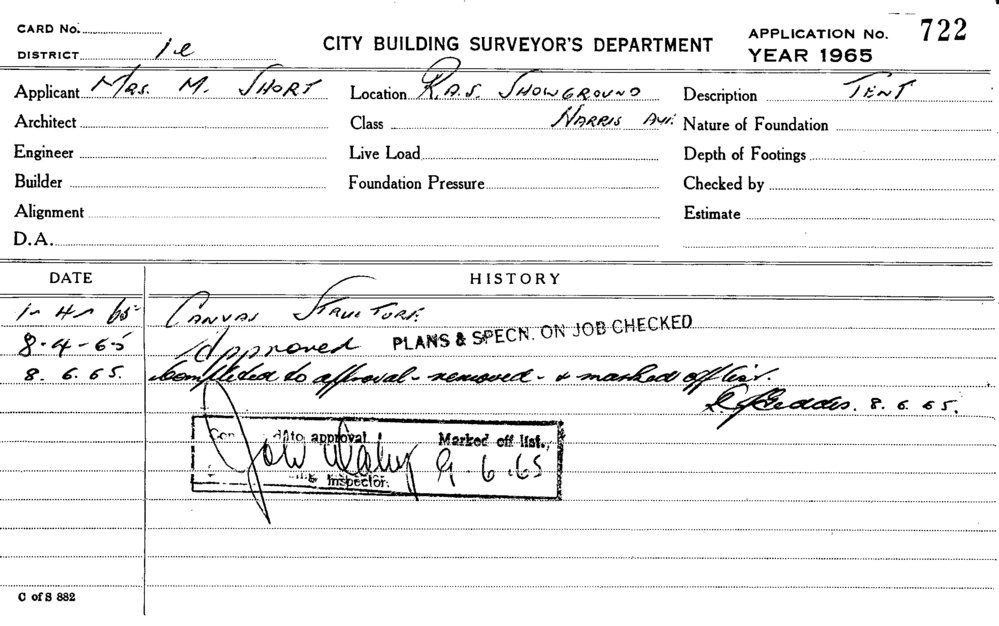 CARD No.
DISTRICT 1e
CITY BUILDING SURVEYOR'S DEPARTMENT
APPLICATION No. 722
YEAR 1965
Applicant Mrs. M. SHORT
Location R.A.S. SHOWGROUND
Description TENT
Architect
Class HARRIS AVE.
Nature of Foundation
Engineer
Live Load
Depth of Footings
Builder
Foundation Pressure
Checked by
Alignment
Estimate
D.A.
DATE
HISTORY
1-4-65 CANVAS STRUCTURE
8-4-65 Approved PLANS & SPECN. ON JOB CHECKED
8.6.65. Completed to approval - removed - & marked off list.
Geddes. 8.6.65.
Com d to approval Marked off list,
9.6.65
Inspector.
C of S 882